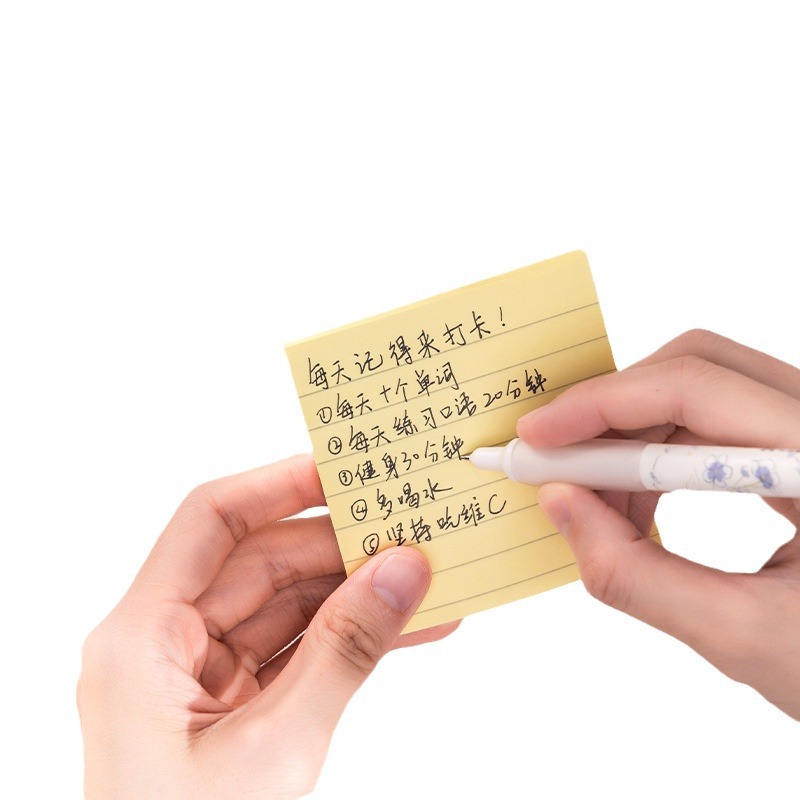 每天记得来打卡!
①每天十个单词
②每天练习口语20分钟
③健身30分钟
④多喝水
⑤坚持吃维C